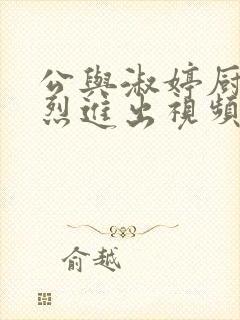 公與淑婷厨
烈進出視頻
俞越